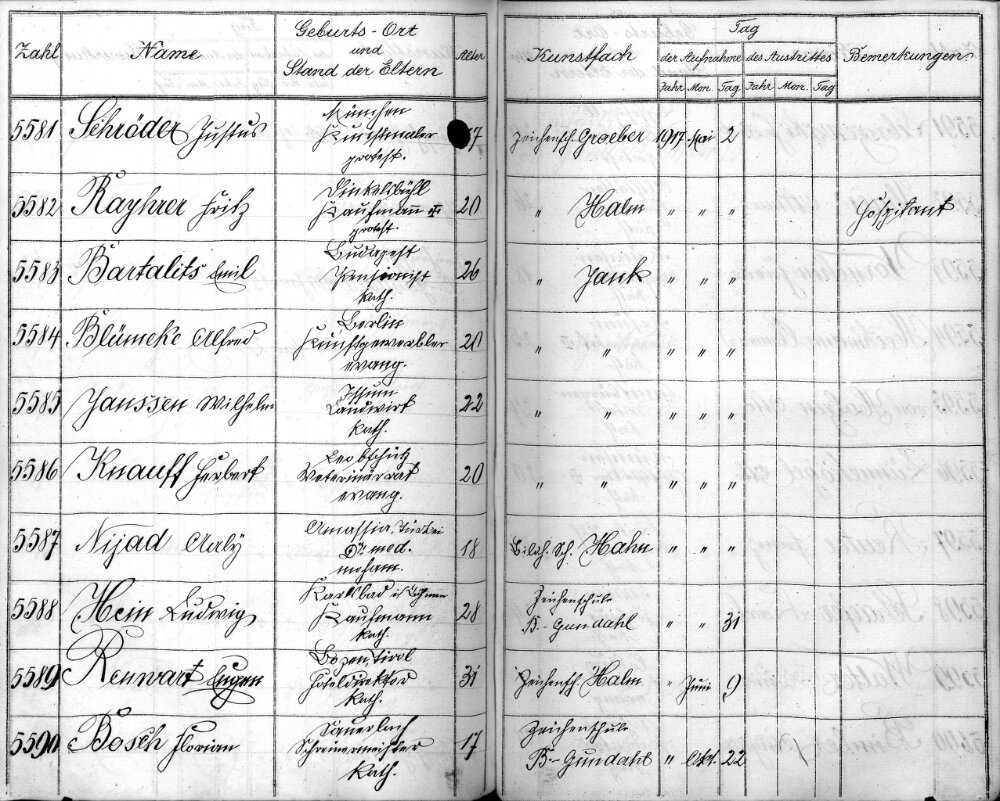 Zahl Name Geburts-Ort und Stand der Eltern Alter Kunstfach Tag der Aufnahme des Austrittes Bemerkungen.
Jahr Mon. Tag Jahr Mon. Tag
5581 Schröder Justus München 17 Zeichensch. Groeber 1917 Mai 2
Kunstmaler
protest.
5582 Rayhrer Fritz Dinkelsbühl
Kaufmann 20 " Halm " " " Hospitant
protest.
5583 Bartalits Emil Budapest
Pensionist 26 " Jank " " "
kath.
5584 Blümcke Alfred Berlin
Kunstgewerbler 20 " " " " "
evang.
5585 Janssen Wilhelm Issum
Landwirt 22 " " " " "
kath.
5586 Knauff Herbert Leobschütz
Veterinärrat 20 " " " " "
evang.
5587 Nijad Aaly Amassia, Türkei
Dr. med. 18 Bildh. Sch. Hahn " " "
moham.
5588 Hein Ludwig Karlsbad i/Böhmen Zeichenschule
Kaufmann 28 B-Gundahl " " 31
kath.
5589 Rennart Eugen Bozen, Tirol
Hoteldirektor 31 Zeichensch. Halm " Juni 9
kath.
5590 Bosch Florian Sauerlach Zeichenschule
Schreinermeister 17 B-Gundahl " Okt. 22
kath.